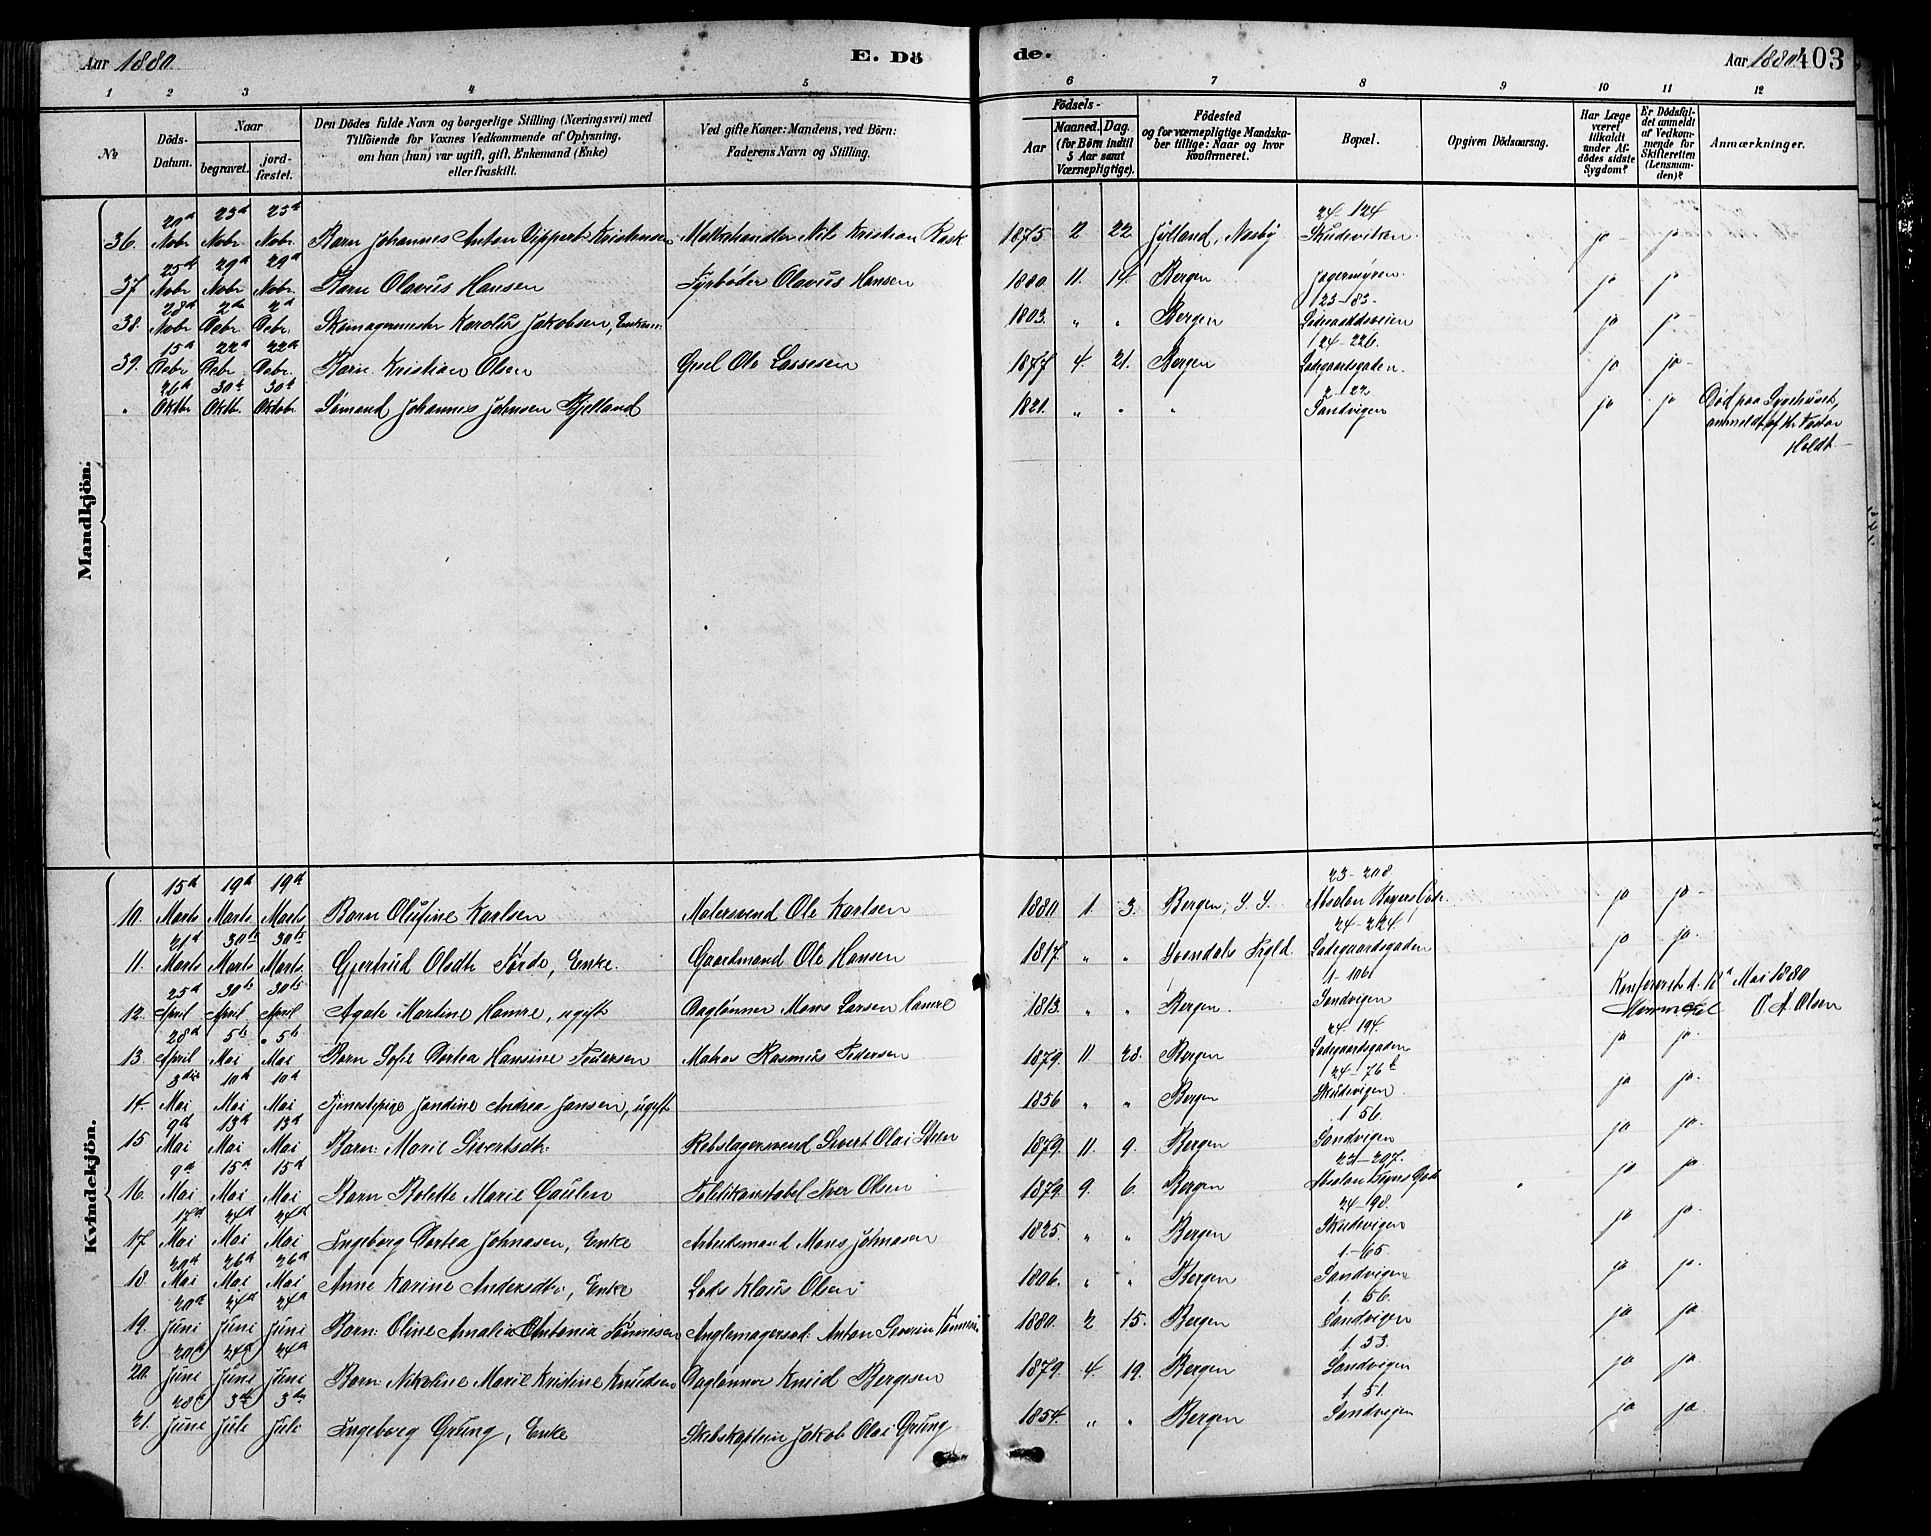 Aar 1880. E. Dö de. Aar 1880. 403
1 2 3 4 5 6 7 8 9 10 11 12
No Döds-Datum. Naar begravet. jord-fæstet. Den Dödes fulde Navn og borgerlige Stilling (Næringsvei) med Tilföiende for Voxnes Vedkommende af Oplysning, om han (hun) var ugift, gift, Enkemand (Enke) eller fraskilt. Ved gifte Koner: Mandens, ved Börn: Faderens Navn og Stilling. Födsels- Aar Maaned. Dag. (for Börn indtil 5 Aar samt Værnepligtige). Födested og for værnepligtige Mandska-ber tillige: Naar og hvor Konfirmeret. Bopæl. Opgiven Dödsaarsag. Har Læge været tilkaldt under Af-dödes sidste Sygdom? Er Dödsfal-det anmeldt af Vedkom-mende for Skifteretten (Lensman-den)? Anmærkninger.
Mandkjön.
36. 20d Nobr 23d Nobr 23d Nobr Barn Johannes Anton Dippert Kristensen Melkehandler Nils Kristian Rask 1875 2 22 Jylland, Nesby 24-124 Skudeviken ja ja
37 25d Nobr 29d Nobr 29d Nobr. Barn Olavus Hansen Fyrbøder Olavus Hansen 1880. 11. 14. Bergen Jægermyren. ja ja
38. 28d Nobr 2den Debr. 2d Debr. Skomagermester Karolus Jakobsen, Enkem. 1803. " " Bergen 23-83. Ladegaardsveien ja ja
39. 15d Debr 22d Debr 22d Debr. Barn Kristian Olsen Gesel Ole Lassesen 1877 4. 21. Bergen 24-226. Ladegaardsgaden. ja ja
" 26d Oktbr. 30te Oktbr. 30te Oktobr Sømand Johannes Johnsen Bjelland 1821. " " " 2-122 Sandvigen ja ja Død paa Sygehuset, anmeldt af Hr. Pastor Holdt
Kvindekjön.
10. 15d Marts 19d Marts 19d Marts Barn Olufine Karlsen Malersvend Ole Karlsen 1880 1 3. Bergen, S. S. 23-208. Absalon Beyers Gade. ja ja
11. 21d Marts 30te Marts 30te Marts. Gjertrud Olsdtr Førde, Enke. Gaardmand Ole Hansen 1817. " " Svendals Prgld. 24-224. Ladegaardsgaden ja ja
12. 25d April 30te April 30te April Agate Martine Hamre, ugift Daglønner Mons Larsen Hamre 1813. " " Bergen. 1-106. Sandvigen Konfereret d. 12d Mai 1880 O. A. Olsen
13. 28d April 5te Mai 5te Mai Barn Sofie Dortea Hansine Pedersen Matros Rasmus Pedersen 1879. 11. 28. Bergen 24-194. Ladegaardsgaden ja ja
14. 3die Mai 10d Mai 10d Mai Tjenestepige Jandine Andrea Jansen, ugift 1856 " " Bergen 24-76b Skudevigen ja ja.
15 9d Mai 13d Mai 13d Mai Barn: Marie Sivertsdtr. Rebslagersvend Sivert Olai Steen 1879. 11. 9. Bergen 1. 56. Sandvigen ja ja.
16. 9d Mai 15d Mai 15d Mai Barn Bolette Marie Gaulen Politikonstabel Iver Olsen 1879. 9. 6. Bergen 23-207. Absalon Beyers Gade ja ja.
17. 17d Mai 24d Mai 24d Mai Ingeborg Dortea Johnasen, Enke Arbeidsmand Mons Johnasen 1825. " " Bergen 24-198. Skudevigen ja ja.
18. 20d Mai 26d Mai 26d Mai Anne Karine Andersdtr, Enke Lods Klaus Olsen 1806. " " Bergen 1.-65. Sandvigen ja ja.
19. 20d Juni 24d Juni 24d Juni Barn: Oline Amalie Antonia Tønnesen Anton Severin Tønnesen 1880. 2 15. Bergen 1. 56. Sandvigen ja ja.
20. 20d Juni 24d Juni 24d Juni Barn: Nikoline Marie Kristine Knudsen Dagløнner Knud Bergesen 1879. 4. 19. Bergen 1. 53. Sandvigen ja ja.
21. 28d June 3die Juli 3die Juli Ingeborg Grung, Enke Skibskaptein Jakob Olai Grung 1854. " " Bergen 1. 51. Sandvigen ja ja.